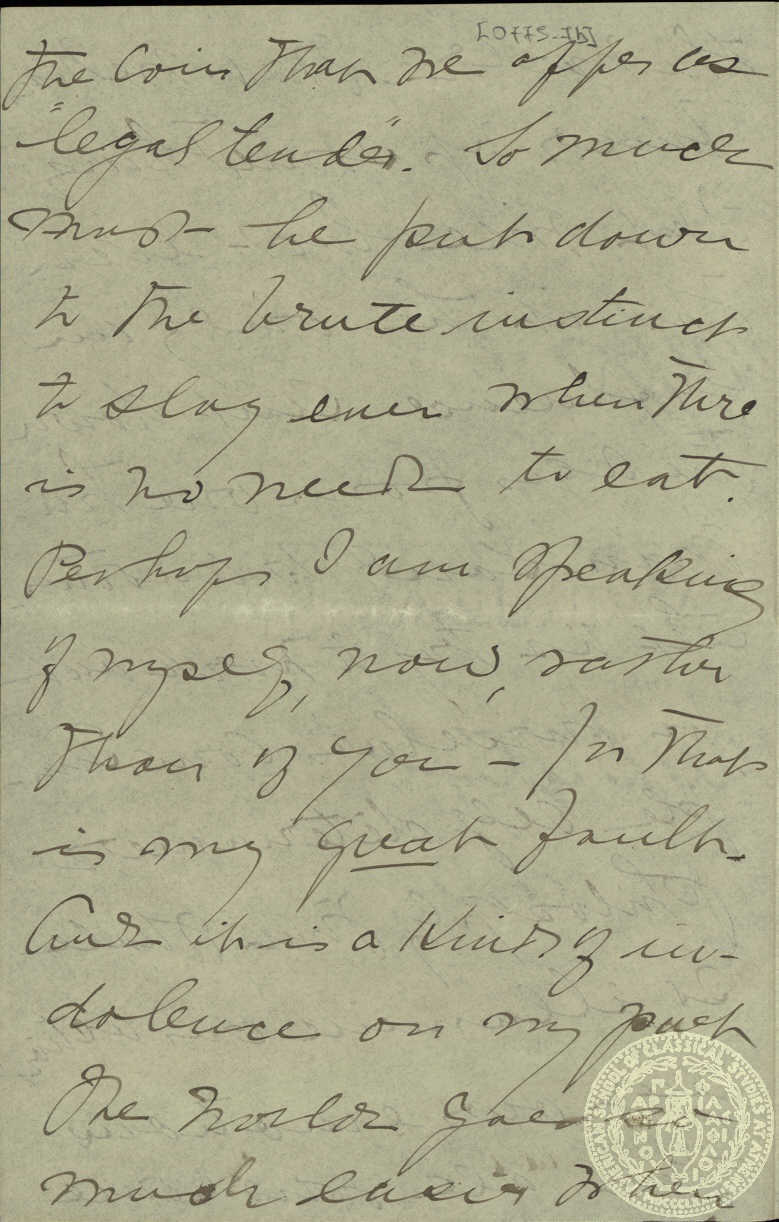 the coin that we offer as
"legal tender". So much
must be put down
to the brute instinct
to slay even when there
is no need to eat.
Perhaps I am speaking
of myself, now, rather
than of you - for that
is my great fault.
And it is a kind of in-
dolence on my part
The world goes
much easier when
AMERICAN SCHOOL OF CLASSICAL STUDIES AT ATHENS